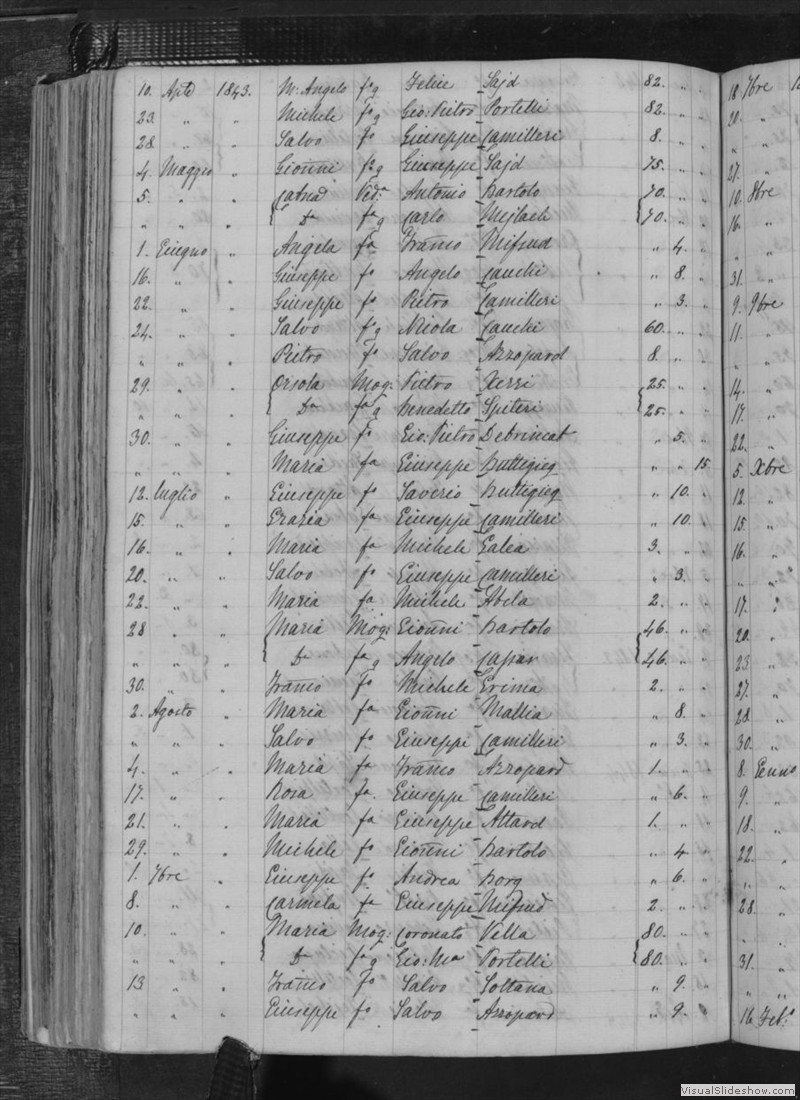 10. Aple 1843. M: Angelo fo g Felice Sajd 82. " "
23. " " Michele fo g Gio: Pietro Portelli 82. " "
28 " " Salvo fo Giuseppe Camilleri 8. " "
4. Maggio " Gioñni fo g Giuseppe Sajd 75. " "
5. " " Catna Veda Antonio Bartolo 70. " "
" " " Da fa g Carlo Mejlach 70. " "
1. Giugno " Angela fa Franco Mifsud " 4. "
16. " " Giuseppe fo Angelo Cauchi " 8. "
22. " " Giuseppe fo Pietro Camilleri " 3. "
24. " " Salvo fo g Niola Cauchi 60. " "
" " " Pietro fo Salvo Azzopard 8. " "
29. " " Orsola Mog: Pietro Xerri 25. " "
" " " Da fa g Benedetto Spiteri 25. " "
30. " " Giuseppe fo Gio: Pietro Debrincat " 5. "
" " " Maria fa Giuseppe Buttigieg " " 15.
12. Luglio " Giuseppe fo Saverio Buttigieg " 10. "
15. " " Grazia fa Giuseppe Camilleri " 10. "
16. " " Maria fa Michele Galea 3. " "
20. " " Salvo fo Giuseppe Camilleri " 3. "
22. " " Maria fa Michele Abela 2. " "
28 " " Maria Mog: Gioñni Bartolo 46. " "
" " " Da fa g Angelo Cassar 46. " "
30. " " Franco fo Michele Grima 2. " "
2. Agosto " Maria fa Gioñni Mallia " 8. "
" " " Salvo fo Giuseppe Camilleri " 3. "
4. " " Maria fa Franco Azzopard 1. " "
17. " " Rosa fa Giuseppe Camilleri " 6. "
21. " " Maria fa Giuseppe Attard 1. " "
29. " " Michele fo Gioñni Bartolo " 4. "
1. 7bre " Giuseppe fo Andrea Borg " 6. "
8. " " Carmela fa Giuseppe Mifsud 2. " "
10. " " Maria Mog: Coronato Vella 80. " "
" " " Da fa g Gio: Ma Portelli 80. " "
13 " " Franco fo Salvo Soltana " 9. "
" " " Giuseppe fo Salvo Azzopard " 9. "
18 7bre
20. "
" "
27. "
10. 8bre
16. "
" "
31. "
9. 9bre
11. "
" "
14. "
17. "
22. "
5. Xbre
12 "
15. "
16. "
" "
17. "
20. "
23 "
27. "
28. "
30. "
8. Genno
9. "
18. "
22. "
" "
28. "
" "
31. "
" "
16 Feb:o
VisualSlideshow.com